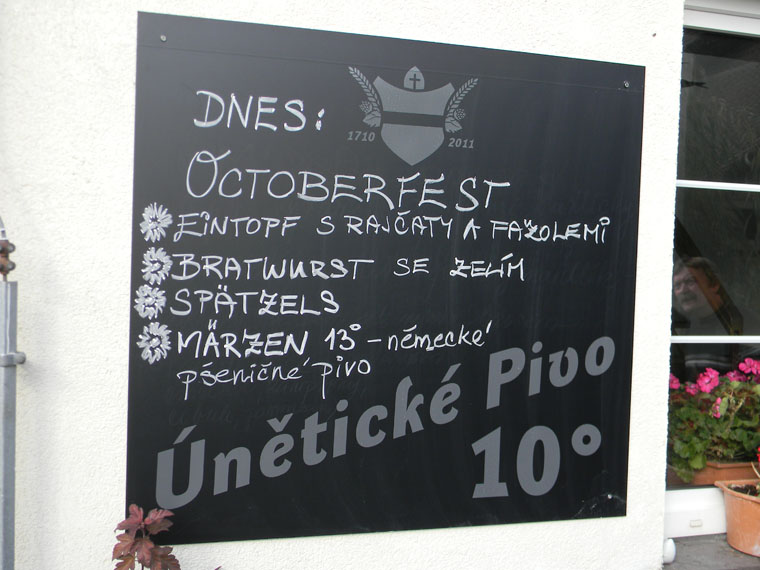 DNES:
1710 2011
OCTOBERFEST
EINTOPF S RAJČATY A FAZOLEMI
BRATWURST SE ZELÍM
SPÄTZELS
MÄRZEN 13° - německé
pšeničné pivo
Únětické Pivo
10°